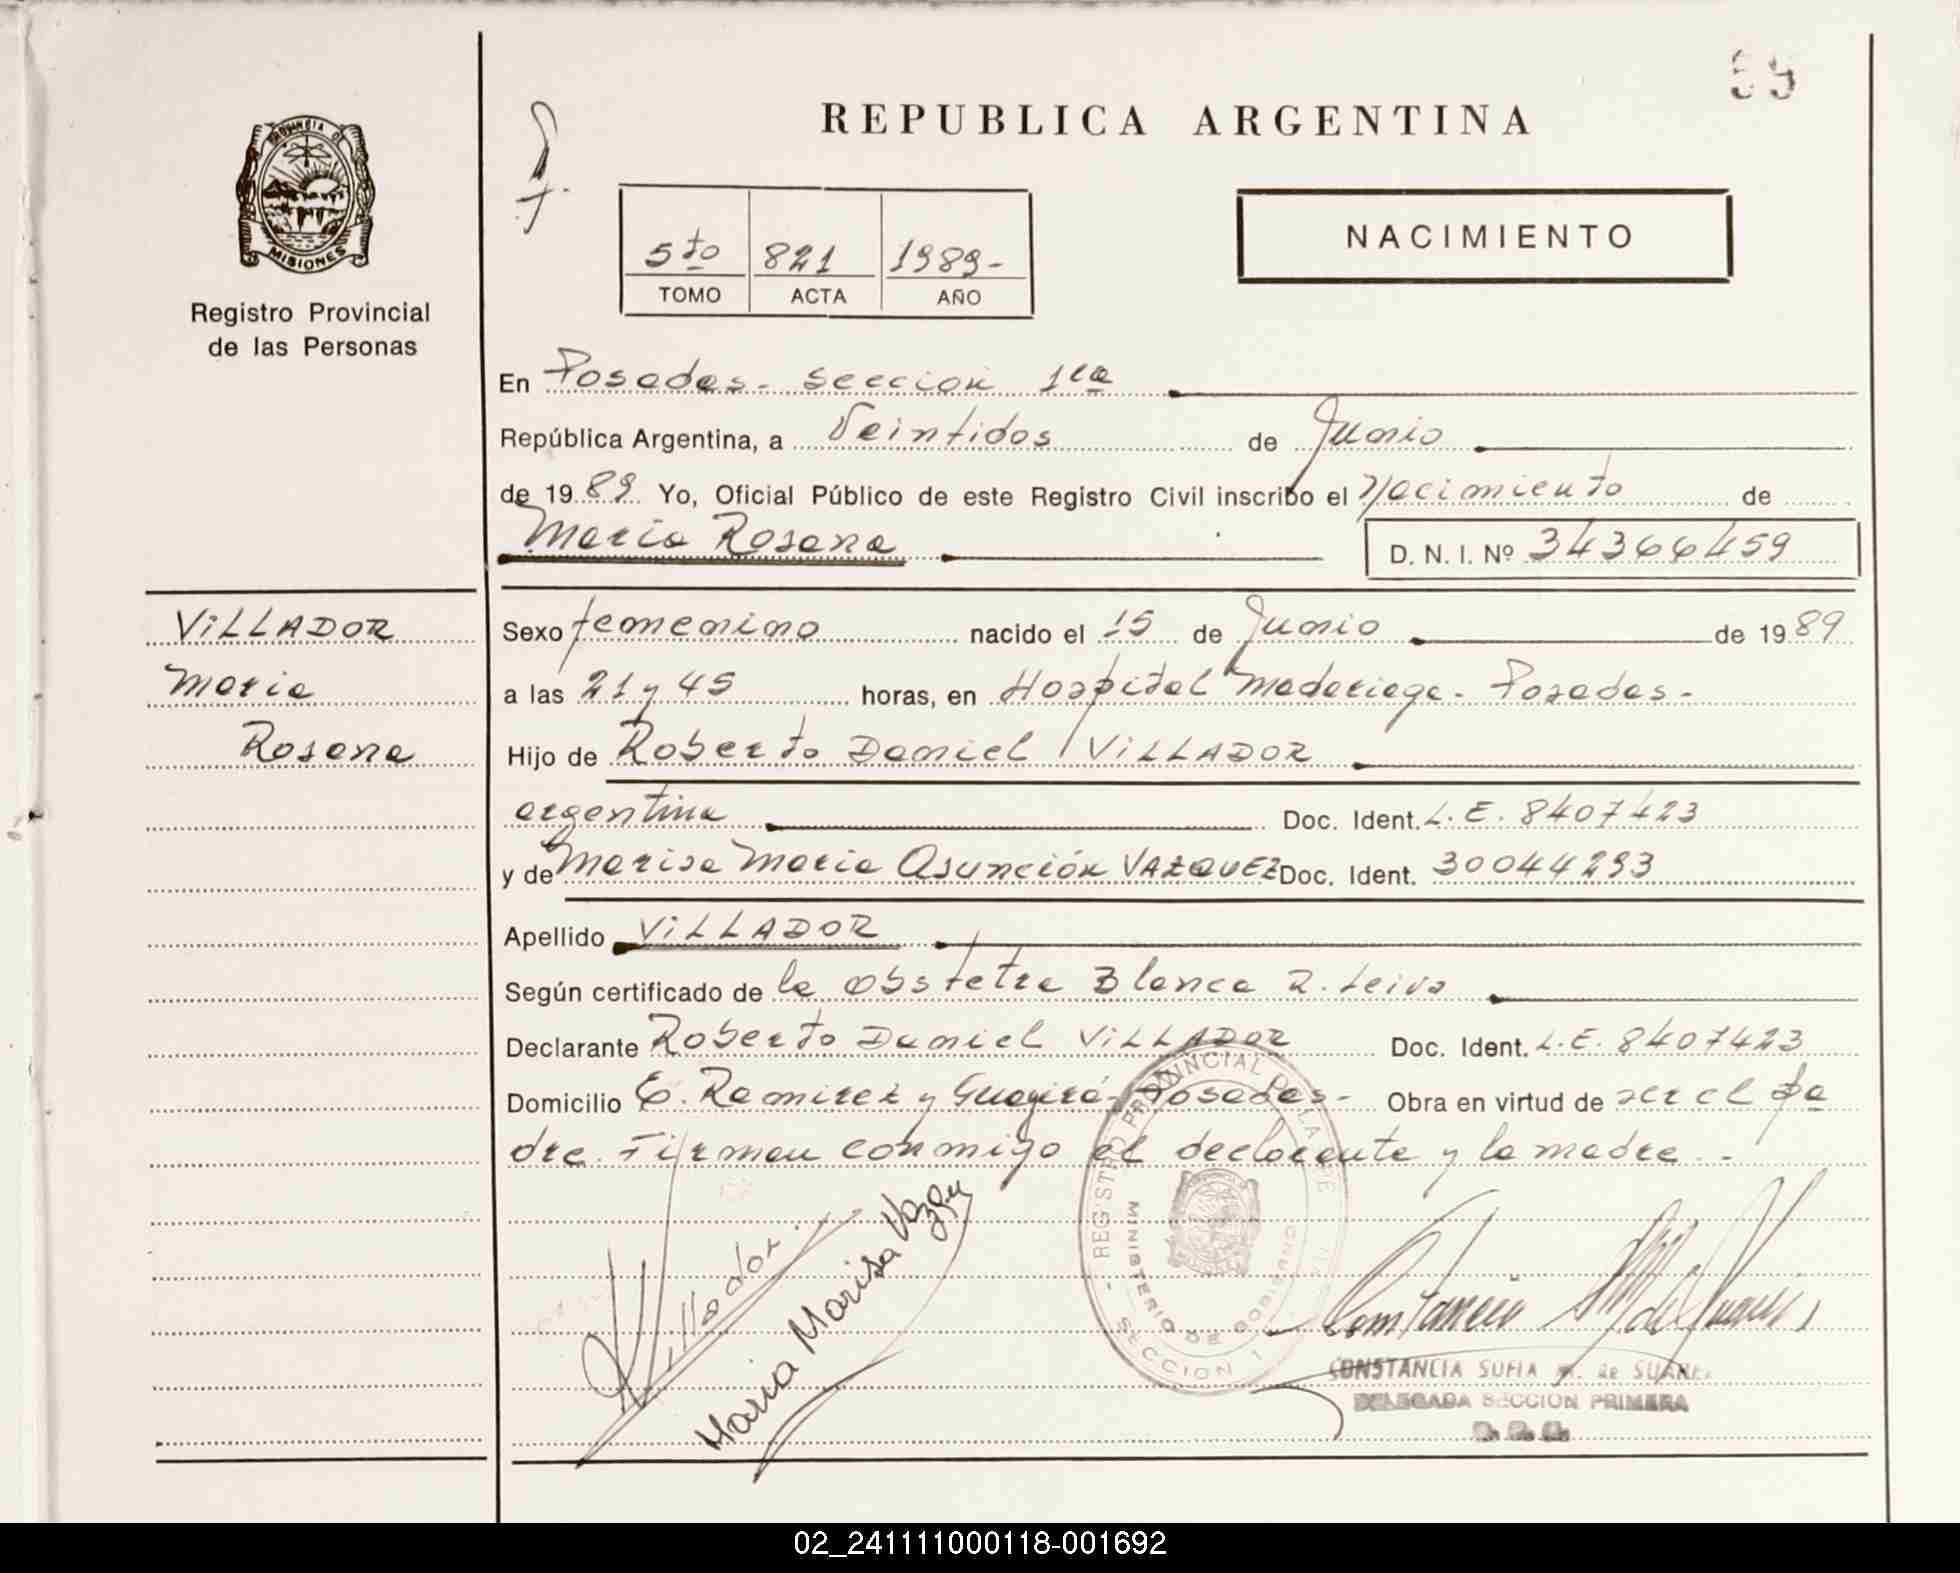 59
REPUBLICA ARGENTINA
PROVINCIA DE
MISIONES
Registro Provincial
de las Personas
NACIMIENTO
5to 821 1989-
TOMO ACTA AÑO
En Posadas- sección 1ra
República Argentina, a Veintidos de Junio
de 1989 Yo, Oficial Público de este Registro Civil inscribo el Nacimiento de
Maria Rosana D. N. I. Nº 34366459
VILLADOR
Maria
Rosana
Sexo femenino nacido el 15 de Junio de 1989
a las 21 y 45 horas, en Hospital Madariaga- Posadas-
Hijo de Roberto Daniel VILLADOR
argentina Doc. Ident. L.E. 8407423
y de Marisa Maria Asunción VAZQUEZ Doc. Ident. 30044293
Apellido VILLADOR
Según certificado de la obstetra Blanca R. Leiva
Declarante Roberto Daniel VILLADOR Doc. Ident. L.E. 8407423
Domicilio E. Ramirez y Guayrá- Posadas- Obra en virtud de ser el pa
dre. Firman conmigo el declarante y la madre.-
Villador
Maria Marisa Vazqu
REGISTRO PROVINCIAL DE LAS
MINISTERIO DE GOBIERNO
SECCION 1
CONSTANCIA SOFIA M. de SUAREZ
DELEGADA SECCION PRIMERA
02_241111000118-001692